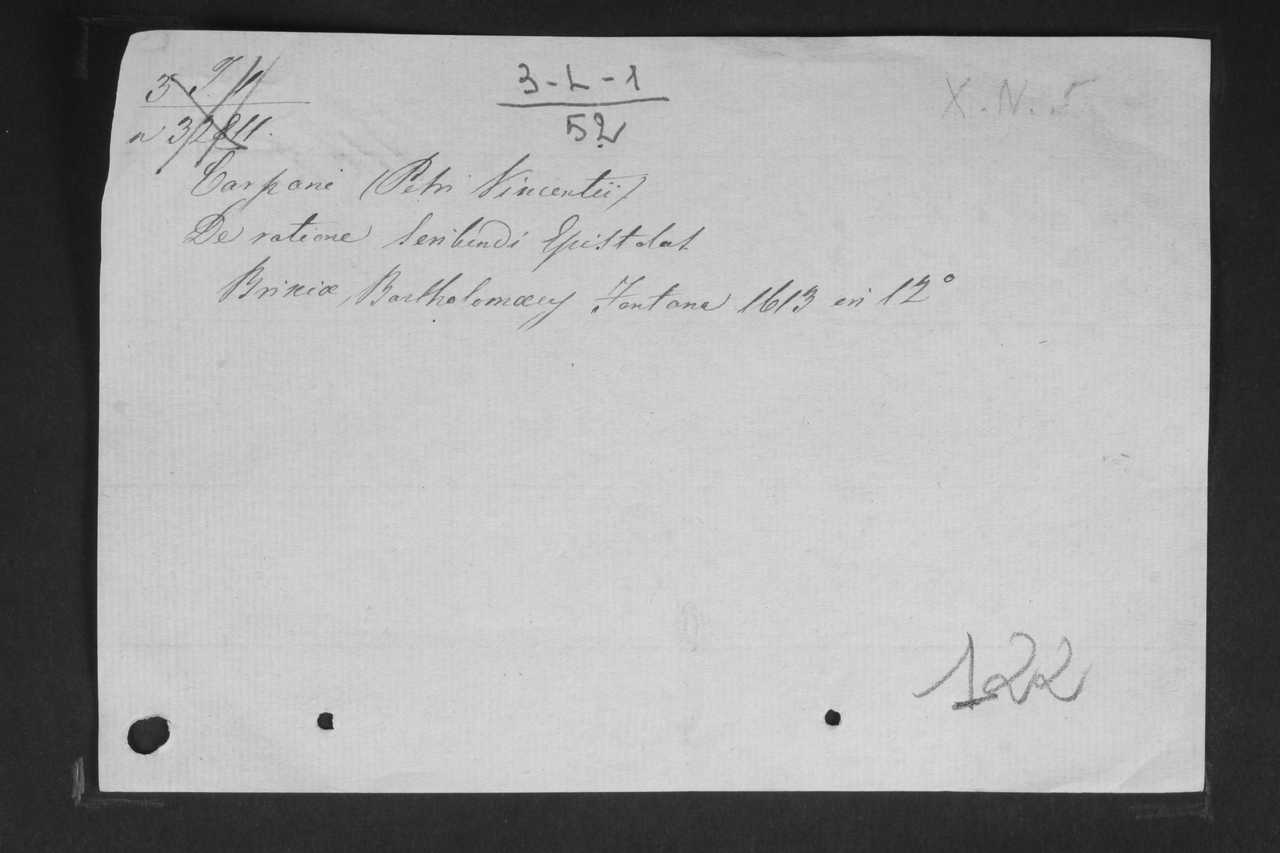 3-L-1
52
X.N.5
3
n 3
Carpani (Petri Vincentii)
De ratione Scribendi Epistolas
Brixiæ, Bartholomæus Fontana 1613 in 12°
122